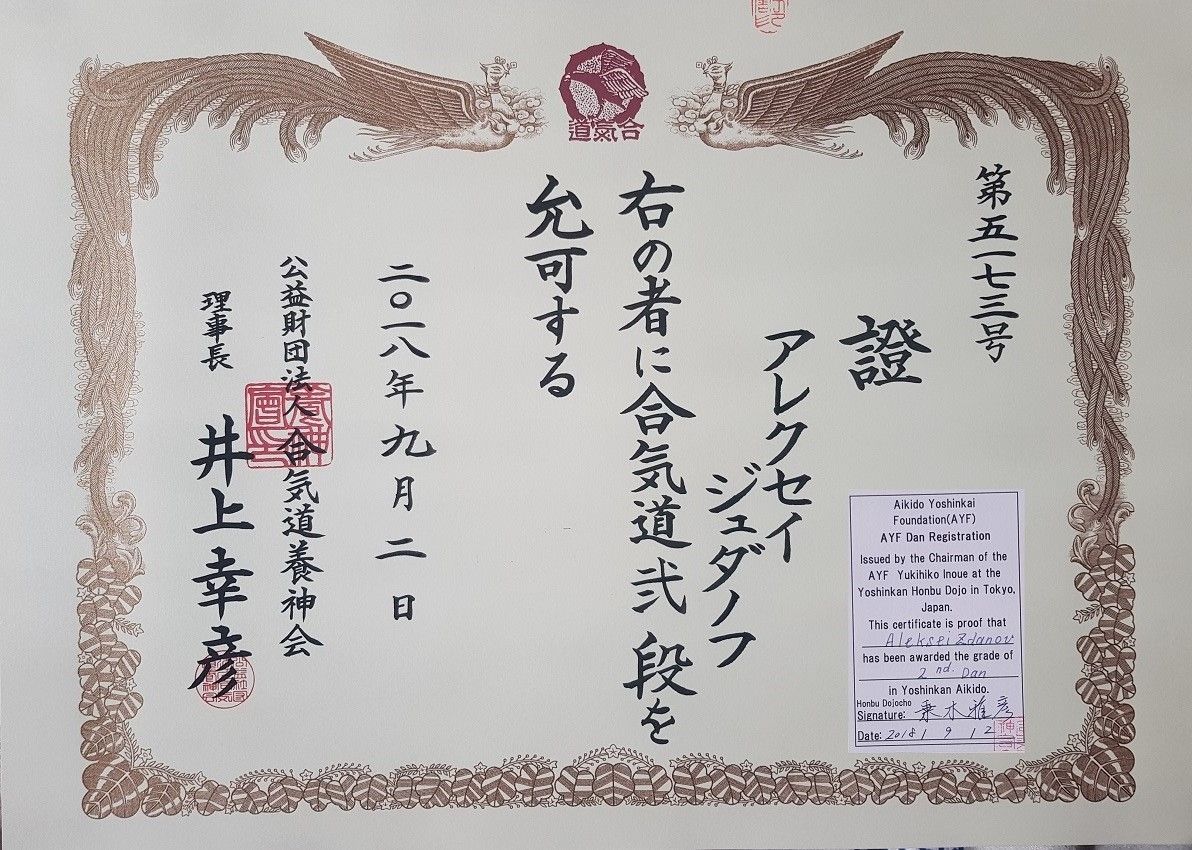 合氣道
第五一七三号
證
アレクセイ
ジュダノフ
右の者に合気道弐段を
允可する
二〇一八年九月二日
公益財団法人合気道養神会
理事長 井上幸彦
Aikido Yoshinkai
Foundation(AYF)
AYF Dan Registration
Issued by the Chairman of the
AYF Yukihiko Inoue at the
Yoshinkan Honbu Dojo in Tokyo,
Japan.
This certificate is proof that
Aleksei Zdanov
has been awarded the grade of
2nd. Dan
in Yoshinkan Aikido.
Honbu Dojocho
Signature: 乗木雅彦
Date: 2018 / 9 / 2